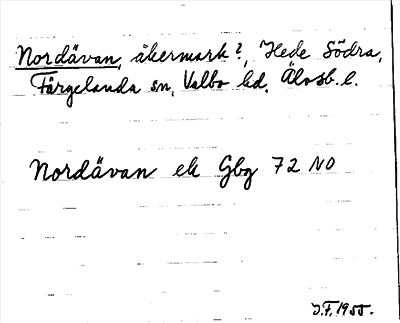 Nordävan, åkermark?, Hede Södra,
Färgelanda sn, Valbo hd. Älvsb. l.
Nordävan ek Gbg 72 NO
J.F. 1955.